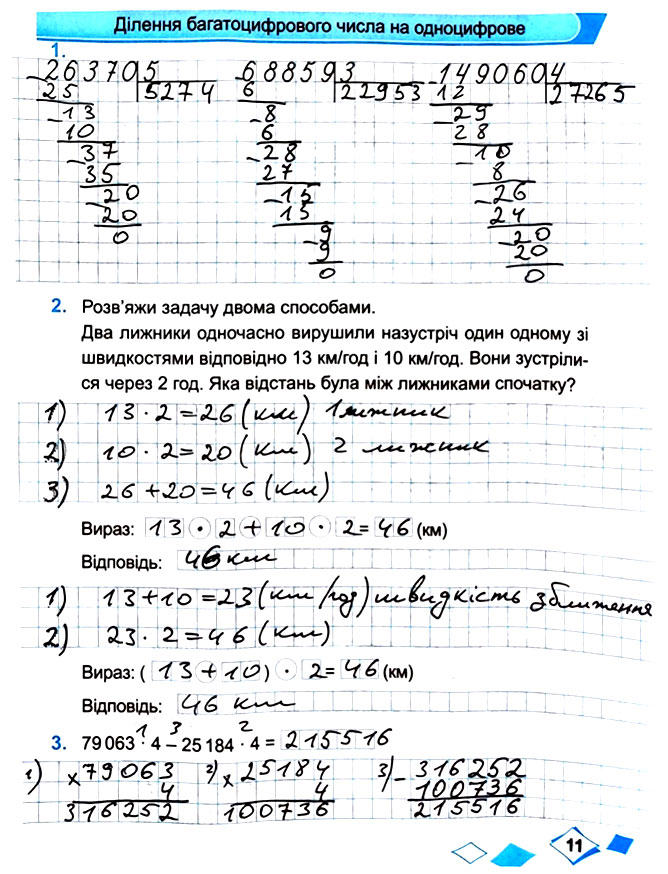 Ділення багатоцифрового числа на одноцифрове
1.
-26370 5 -68859 3 -149060 4
25 5274 6 22953 12 27265
-13 -8 -29
10 6 28
-37 -28 -10
35 27 8
-20 -15 -26
20 15 24
0 -9 -20
9 20
0 0
2. Розв'яжи задачу двома способами.
Два лижники одночасно вирушили назустріч один одному зі
швидкостями відповідно 13 км/год і 10 км/год. Вони зустріли-
ся через 2 год. Яка відстань була між лижниками спочатку?
1) 13 · 2 = 26 (км) 1 лижник
2) 10 · 2 = 20 (км) 2 лижник
3) 26 + 20 = 46 (км)
Вираз: 13 · 2 + 10 · 2 = 46 (км)
Відповідь: 46 км
1) 13 + 10 = 23 (км/год) швидкість зближення
2) 23 · 2 = 46 (км)
Вираз: (13 + 10) · 2 = 46 (км)
Відповідь: 46 км
1 3 2
3. 79 063 · 4 – 25 184 · 4 = 215516
1) ×79063 2) ×25184 3) -316252
4 4 100736
316252 100736 215516
11